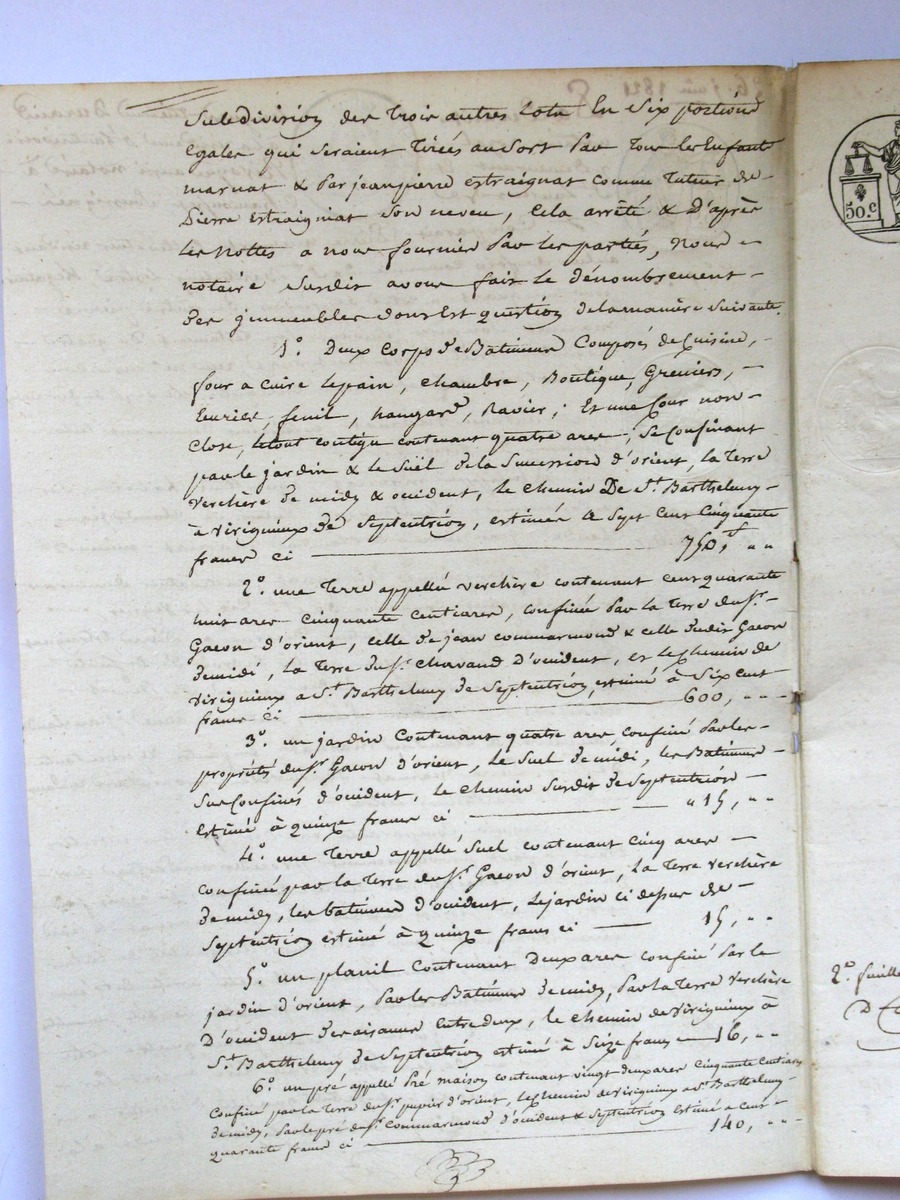 Subdivision des trois autres lots En Six portions
Egales qui seraient tirées au Sort Par tous les Enfants
marnat & Par jeanpierre extraignat comme tuteur de
Pierre extraigniat Son neveu, Cela arrêté & D'après
les nottes a nous fournier Par les parties, Nous
notaire Susdit avons fait le dénombrement
Des jmmeubles dont Est question de la manière Suivante.
1°. Deux Corps de Batiments Composés de Cuisine,
four a Cuire le pain, Chambre, Boutique, Greniers,
Ecuries, fenil, hangard, Ravier; Et une Cour non
Close, le tout contigu contenant quatre ares; Se Confinant
par le jardin & le Suël de la Succession d'orient, la Terre
verchère de midy & occident, le chemin De St. Barthelemy
à Virigniux de Septentrion, estimés a Sept Cent Cinquante
francs ci 750, f " "
2°. une Terre appellée verchère contenant cent quarante
huit ares Cinquante Centiares, confinée Par la Terre du Sr.
Gacon d'orient, celle de jean Commarmond & celle dudit Gacon
de midi, la Terre du Sr. Chavand D'occident, et le chemin de
Virigniux a St. Barthelemy de Septentrion, estimé à Six Cent
francs ci 600, " "
3°. un jardin Contenant quatre ares, Confiné Par les
propriétés du Sr. Gacon d'orient, le Suel de midi, les Batiments
Sus Confinés d'occident, le chemin Susdit de Septentrion
Estimé à quinze francs ci " 15, " "
4°. une Terre appellé Suel contenant Cinq ares
Confinée par la Terre du Sr. Gacon D'orient, la Terre verchère
de midy, les batiments D'occident, le jardin ci dessus de
Septentrion estimé à quinze francs ci 15, " "
5°. un planil Contenant Deux ares confiné Par le
jardin d'orient, Par les Batiments de midy, Par la Terre verchère
D'occident des aisances Entre deux, le Chemin de Virigniux à
St. Barthelemy de Septentrion estimé à Seize francs 16, " "
6°. un pré appellé Pré maison contenant vingt deux ares Cinquante Centiares
Confiné par la Terre du Sr. pupier d'orient, le chemin de Virigniux a St. Barthelemy
de midy, Par le pré du Sr. Commarmond D'occident & Septentrion Estimé a Cent
quarante francs ci 140, " "
50.c
2e. feuille